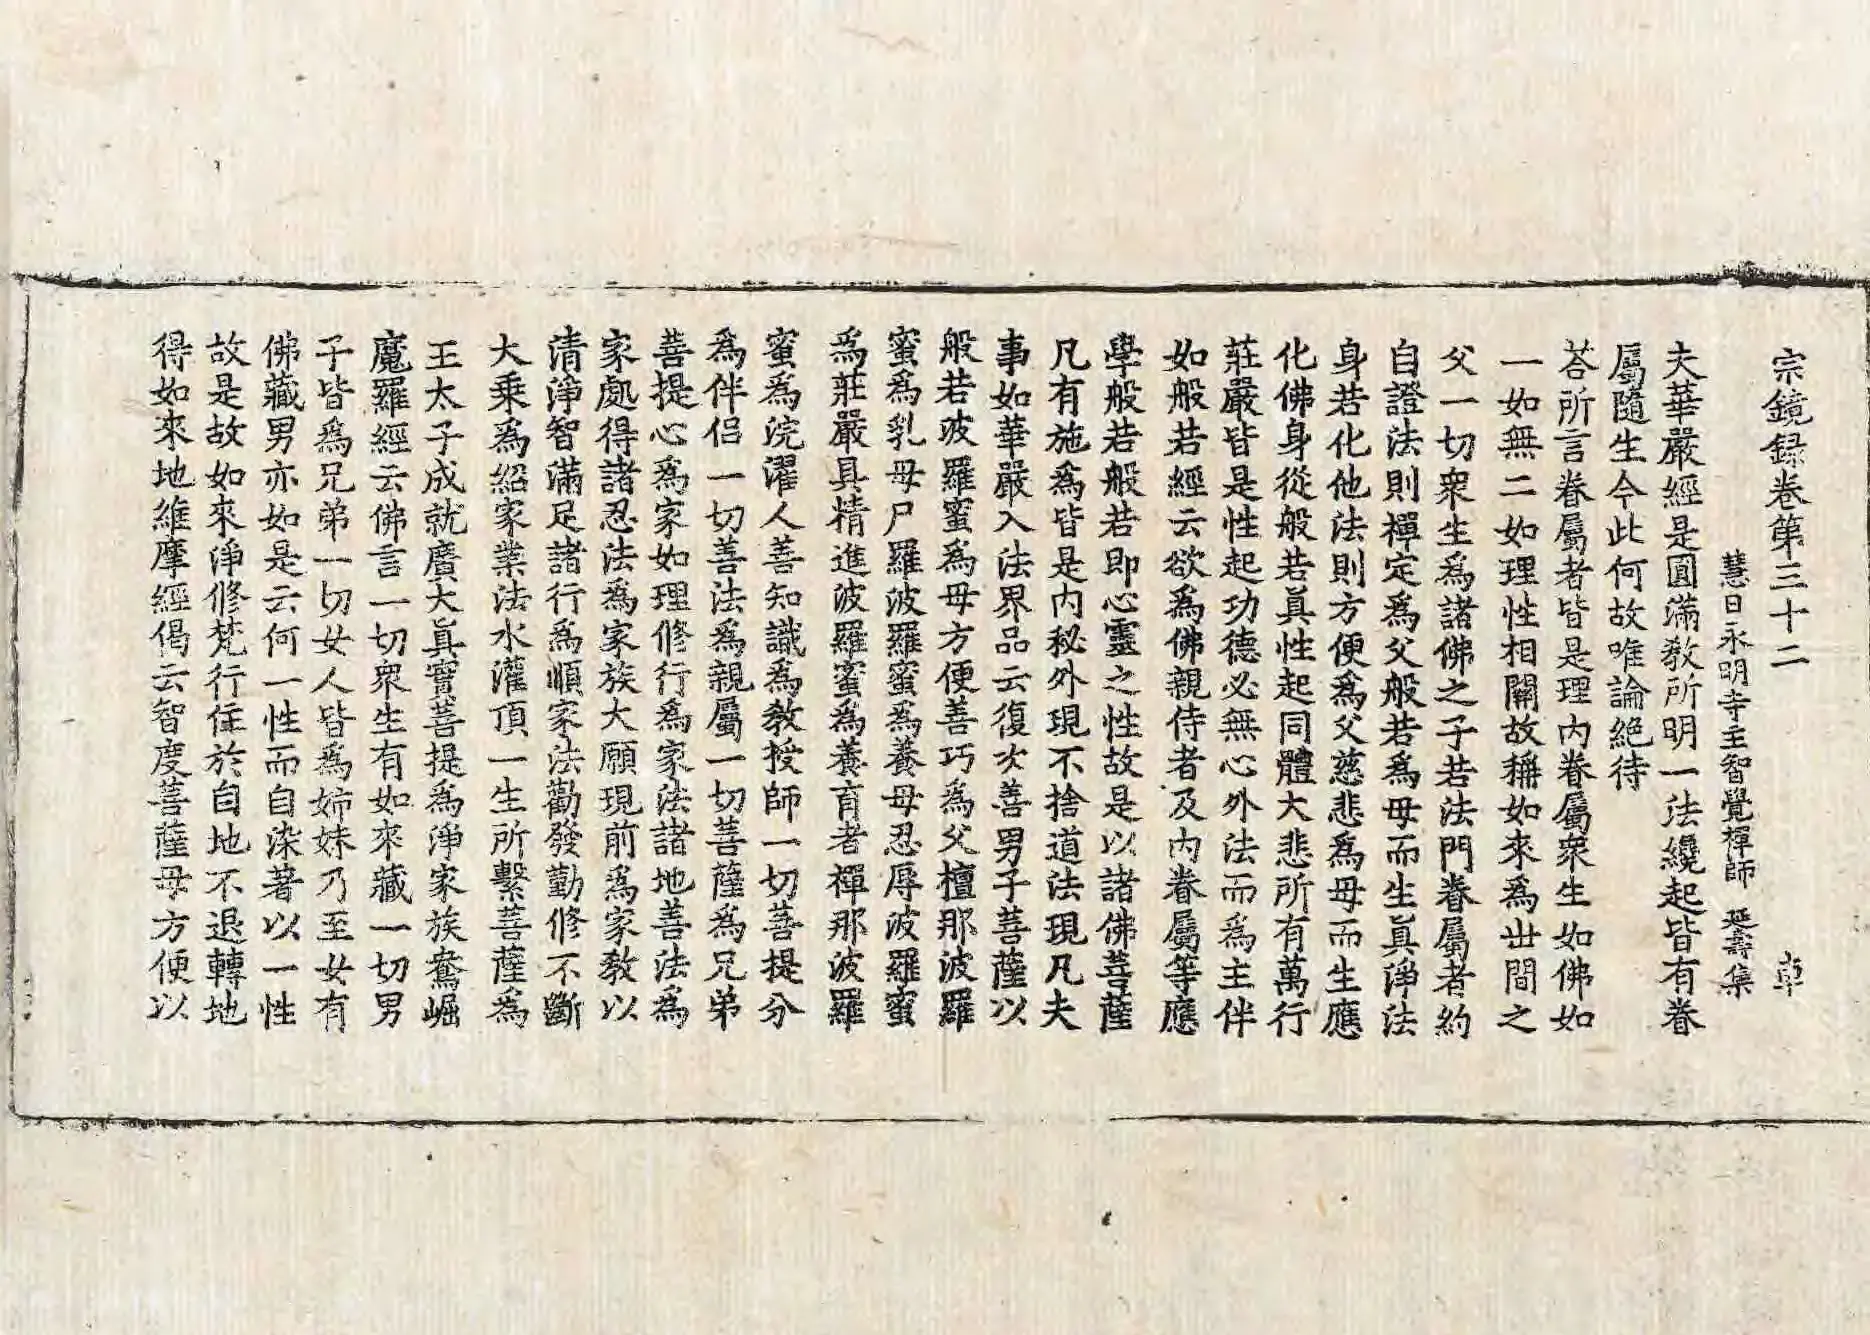 宗鏡録卷第三十二
慧日永明寺主智覺禪師 延壽集
夫華嚴經是圓滿教所明一法纔起皆有眷
屬隨生今此何故唯論絶待
荅所言眷屬者皆是理内眷屬衆生如佛如
一如無二如理性相關故稱如來為世間之
父一切衆生爲諸佛之子若法門眷屬者約
自證法則禪定爲父般若爲母而生眞淨法
身若化他法則方便爲父慈悲爲母而生應
化佛身從般若眞性起同體大悲所有萬行
莊嚴皆是性起功德必無心外法而爲主伴
如般若經云欲爲佛親侍者及内眷屬等應
學般若般若即心靈之性故是以諸佛菩薩
凡有施爲皆是内秘外現不捨道法現凡夫
事如華嚴入法界品云復次善男子菩薩以
般若波羅蜜爲母方便善巧爲父檀那波羅
蜜爲乳母尸羅波羅蜜爲養母忍辱波羅蜜
爲莊嚴具精進波羅蜜爲養育者禪那波羅
蜜爲浣濯人善知識爲教授師一切菩提分
爲伴侣一切善法爲親屬一切菩薩爲兄弟
菩提心爲家如理修行爲家法諸地善法爲
家處得諸忍法爲家族大願現前爲家教以
清淨智滿足諸行爲順家法勸發勤修不斷
大乘爲紹家業法水灌頂一生所繫菩薩爲
王太子成就廣大眞實菩提爲淨家族鴦崛
魔羅經云佛言一切衆生有如來藏一切男
子皆爲兄弟一切女人皆爲姉妹乃至女有
佛藏男亦如是云何一性而自染著以一性
故是故如來淨修梵行住於自地不退轉地
得如來地維摩經偈云智度菩薩母方便以